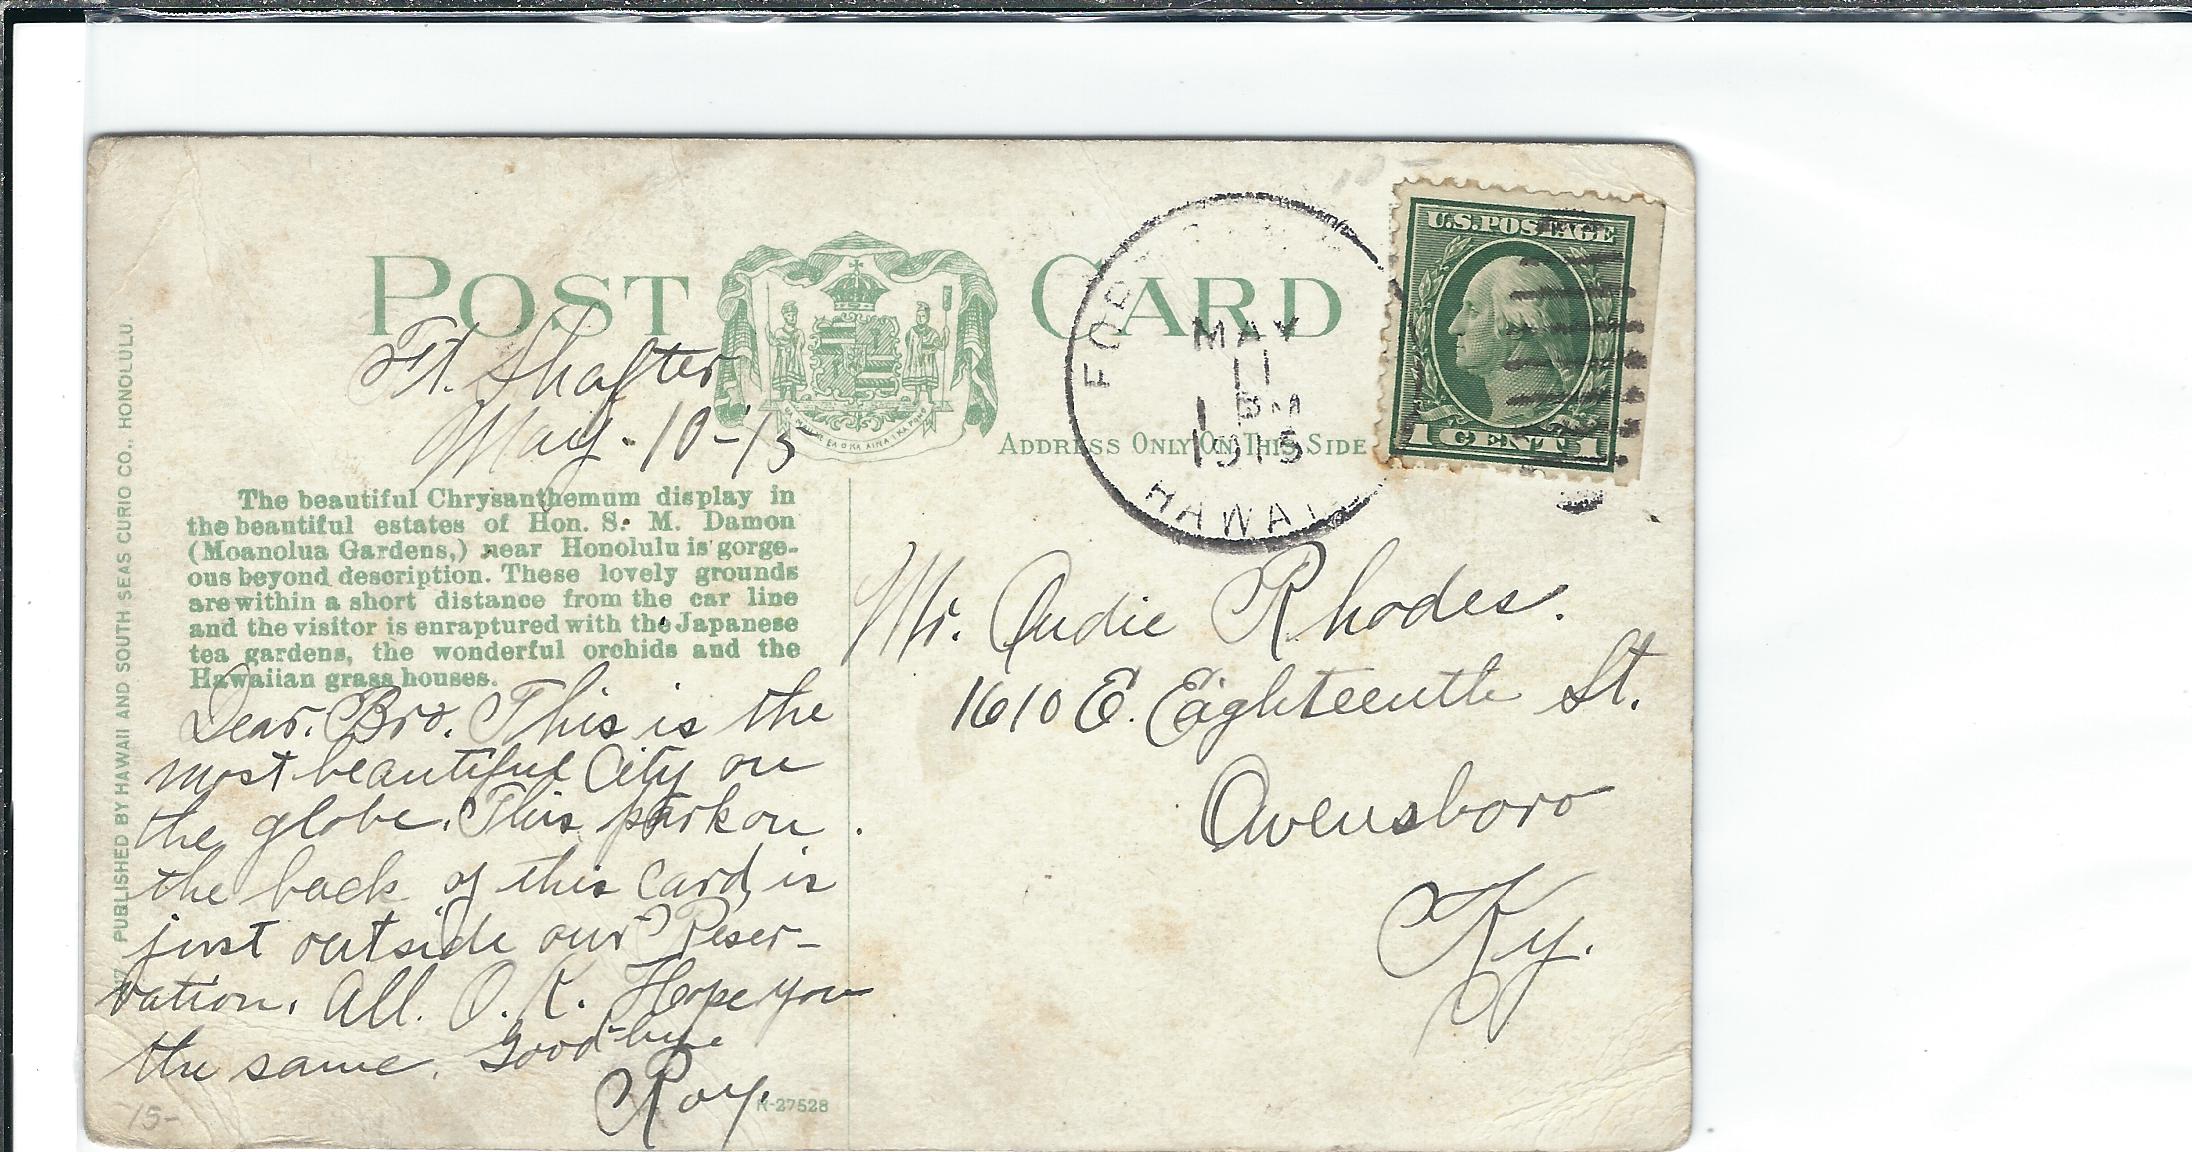 POST CARD
U.S. POSTAGE
1 CENT 1
MAY
11
1 PM
1915
HAWAII
ADDRESS ONLY ON THIS SIDE
Ft. Shafter
May. 10-15
The beautiful Chrysanthemum display in
the beautiful estates of Hon. S. M. Damon
(Moanolua Gardens,) near Honolulu is gorge-
ous beyond description. These lovely grounds
are within a short distance from the car line
and the visitor is enraptured with the Japanese
tea gardens, the wonderful orchids and the
Hawaiian grass houses.
Dear. Bro. This is the
most beautiful City on
the globe. This park on
the back of this Card, is
just outside our Reser-
vation. All. O. K. Hope you
the same. Good-bye
Roy.
R-27528
15-
Mr. Audie Rhodes.
1610 E. Eighteenth St.
Owensboro
Ky.
PUBLISHED BY HAWAII AND SOUTH SEAS CURIO CO., HONOLULU.
10-